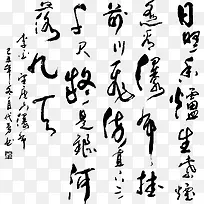 日照香爐生紫煙
遥看瀑布挂
前川飛流直下三
千尺疑是銀河
落九天
李白望庐山瀑布
己丑年冬月